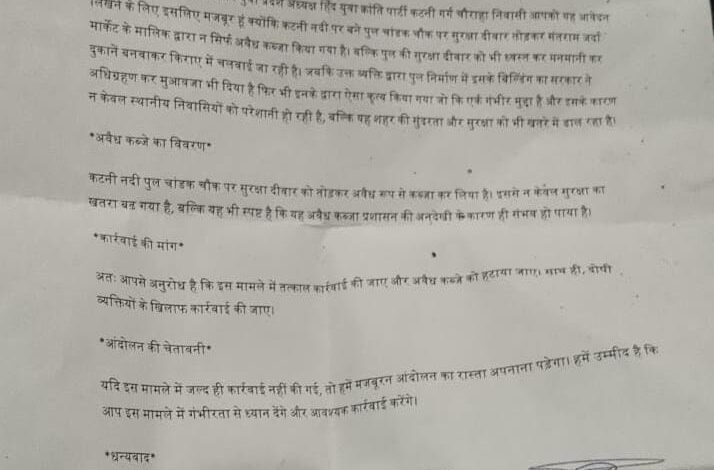 प्रदेश अध्यक्ष हिंद युवा क्रांति पार्टी कटनी गर्ग चौराहा निवासी आपको यह आवेदन
लिखने के लिए इसलिए मजबूर हूं क्योंकि कटनी नदी पर बने पुल चांडक चौक पर सुरक्षा दीवार तोड़कर मंतराम जर्दा
मार्केट के मालिक द्वारा न सिर्फ अवैध कब्जा किया गया है। बल्कि पुल की सुरक्षा दीवार को भी ध्वस्त कर मनमानी कर
दुकानें बनवाकर किराए में चलवाई जा रही है। जबकि उक्त व्यक्ति द्वारा पुल निर्माण में इसके बिल्डिंग का सरकार ने
अधिग्रहण कर मुआवजा भी दिया है फिर भी इनके द्वारा ऐसा कृत्य किया गया जो कि एक गंभीर मुद्दा है और इसके कारण
न केवल स्थानीय निवासियों को परेशानी हो रही है, बल्कि यह शहर की सुंदरता और सुरक्षा को भी खतरे में डाल रहा है।
*अवैध कब्जे का विवरण*
कटनी नदी पुल चांडक चौक पर सुरक्षा दीवार को तोड़कर अवैध रूप से कब्जा कर लिया है। इससे न केवल सुरक्षा का
खतरा बढ़ गया है, बल्कि यह भी स्पष्ट है कि यह अवैध कब्जा प्रशासन की अनदेखी के कारण ही संभव हो पाया है।
*कार्रवाई की मांग*
अतः आपसे अनुरोध है कि इस मामले में तत्काल कार्रवाई की जाए और अवैध कब्जे को हटाया जाए। साथ ही, दोषी
व्यक्तियों के खिलाफ कार्रवाई की जाए।
*आंदोलन की चेतावनी*
यदि इस मामले में जल्द ही कार्रवाई नहीं की गई, तो हमें मजबूरन आंदोलन का रास्ता अपनाना पड़ेगा। हमें उम्मीद है कि
आप इस मामले में गंभीरता से ध्यान देंगे और आवश्यक कार्रवाई करेंगे।
*धन्यवाद*